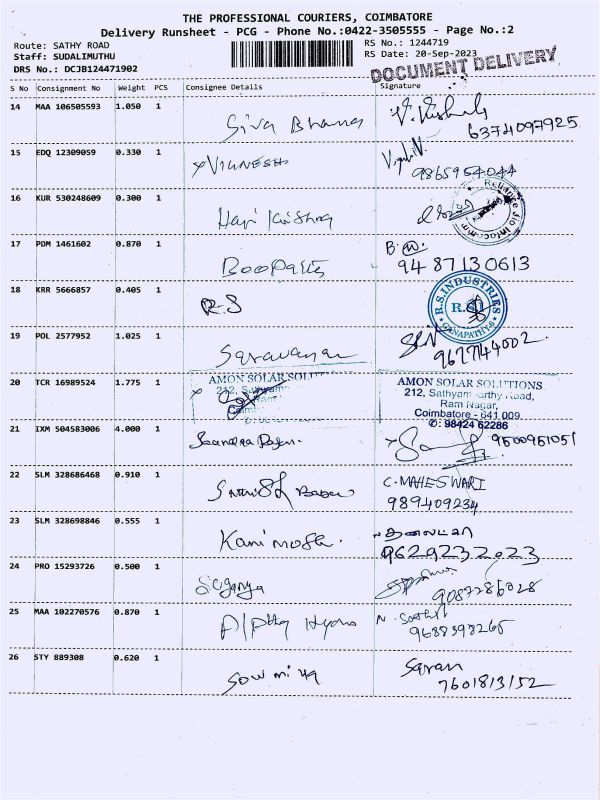 THE PROFESSIONAL COURIERS, COIMBATORE
Delivery Runsheet - PCG - Phone No.:0422-3505555 - Page No.:2
Route: SATHY ROAD
Staff: SUDALIMUTHU
DRS No.: DCJB124471902
RS No.: 1244719
RS Date: 20-Sep-2023
DOCUMENT DELIVERY
S No Consignment No Weight PCS Consignee Details Signature
14 MAA 106505593 1.050 1 Siva
6374097925
15 EDQ 12309059 0.330 1 VIGNESH
9865954044
16 KUR 530248609 0.300 1 Hari Krishna
Reliance Jio Infocomm
17 PDM 1461602 0.870 1 Boopathi
94 87130613
18 KRR 5666857 0.405 1 R-S
R.S.INDUSTRIES
R.S.I
GANAPATHY-6
19 POL 2577952 1.025 1 Saravanan
20 TCR 16989524 1.775 1
AMON SOLAR SOLUT
212, Sathyam
AMON SOLAR SOLUTIONS
212, Sathyamoorthy Road,
Ram Nagar,
Coimbatore - 641 009.
✆: 98424 62286
21 IXM 504583006 4.000 1
9500951051
22 SLM 328686468 0.910 1 Sathish Babu
C. MAHESWARI
989409234
23 SLM 328698846 0.555 1 Kanimoza.
9629232023
24 PRO 15293726 0.500 1 Suganya
9087286028
25 MAA 102270576 0.870 1
9688398265
26 STY 889308 0.620 1 Sowmiya
Saran
7601813152